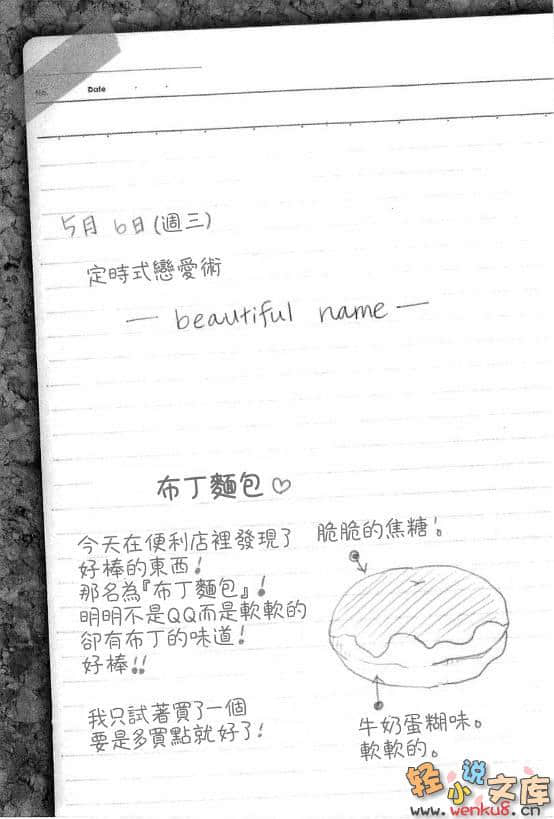 No.
Date
5月 6日(週三)
定時式戀愛術
— beautiful name —
布丁麵包♡
今天在便利店裡發現了
好棒的東西!
那名為『布丁麵包』!
明明不是QQ而是軟軟的
卻有布丁的味道!
好棒!!
我只試著買了一個
要是多買點就好了!
脆脆的焦糖!
牛奶蛋糊味。
軟軟的。
轻小说文库
www.wenku8.cn